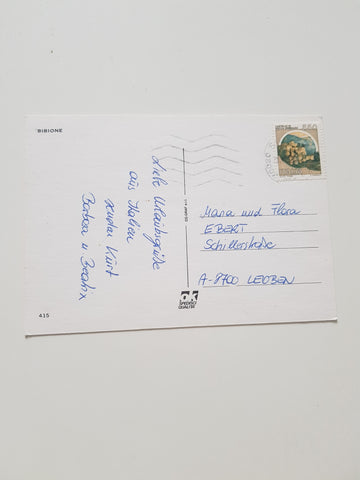 BIBIONE
Liebe Urlaubsgrüße
aus Italien
Kurt
Barbara u Beatrix
Maria und Flora
EBERT
Schillerstraße
A-8700 LEOBEN
415